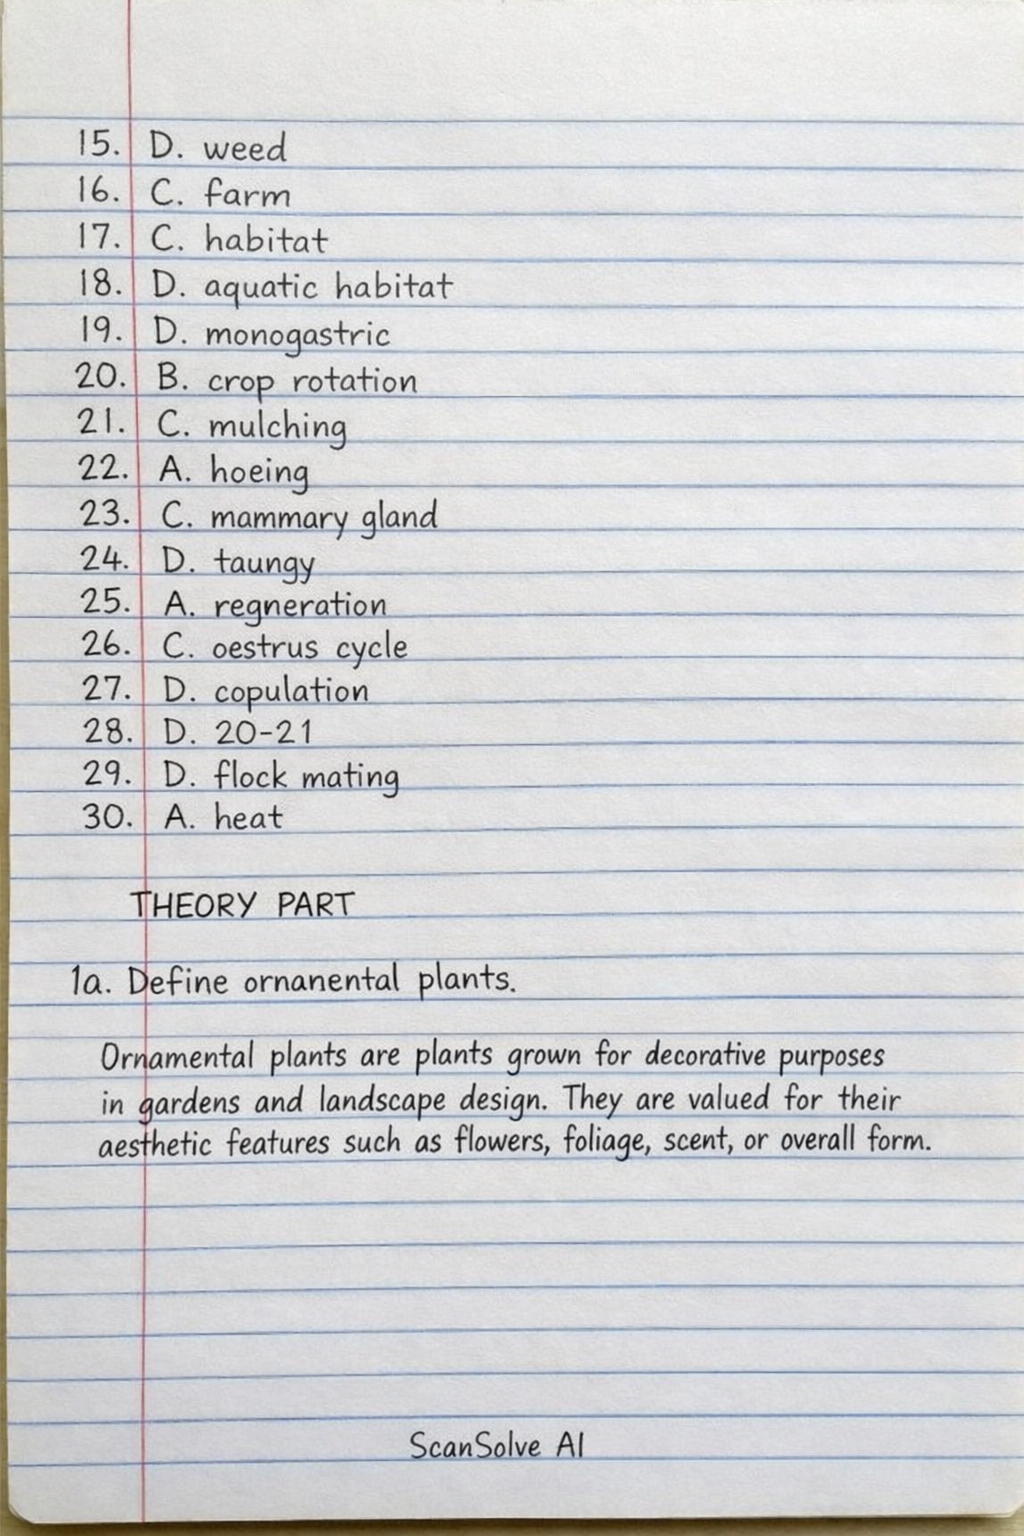 15. D. weed
16. C. farm
17. C. habitat
18. D. aquatic habitat
19. D. monogastric
20. B. crop rotation
21. C. mulching
22. A. hoeing
23. C. mammary gland
24. D. taungy
25. A. regneration
26. C. oestrus cycle
27. D. copulation
28. D. 20-21
29. D. flock mating
30. A. heat
THEORY PART
1a. Define ornanental plants.
Ornamental plants are plants grown for decorative purposes
in gardens and landscape design. They are valued for their
aesthetic features such as flowers, foliage, scent, or overall form.
ScanSolve AI